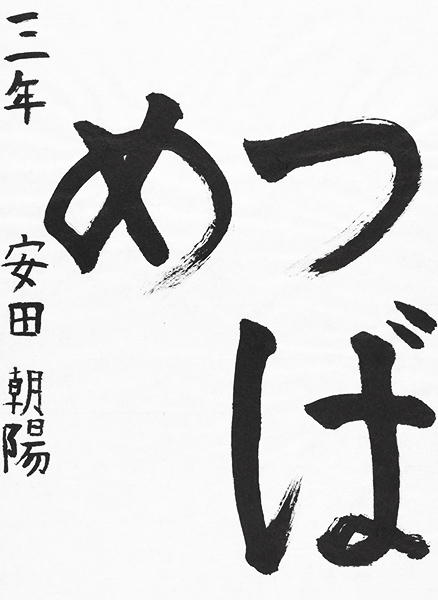 つば
め
三年 安田 朝陽